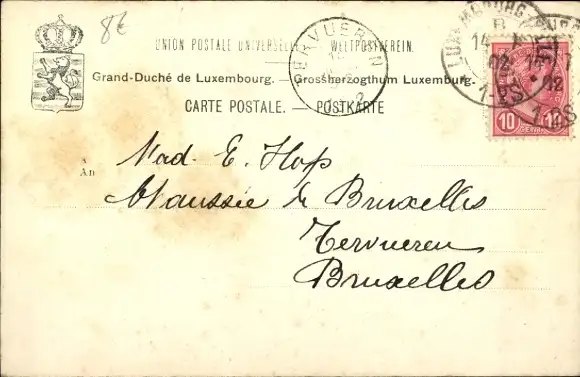 8€
UNION POSTALE UNIVERSELLE. WELTPOSTVEREIN.
Grand-Duché de Luxembourg. - Grossherzogthum Luxemburg.
CARTE POSTALE. - POSTKARTE
TERVUEREN
LUXEMBOURG
14
02
1-2S
10 10
A
An
Mad. E. Hop
Chaussée de Bruxelles
Tervueren
Bruxelles